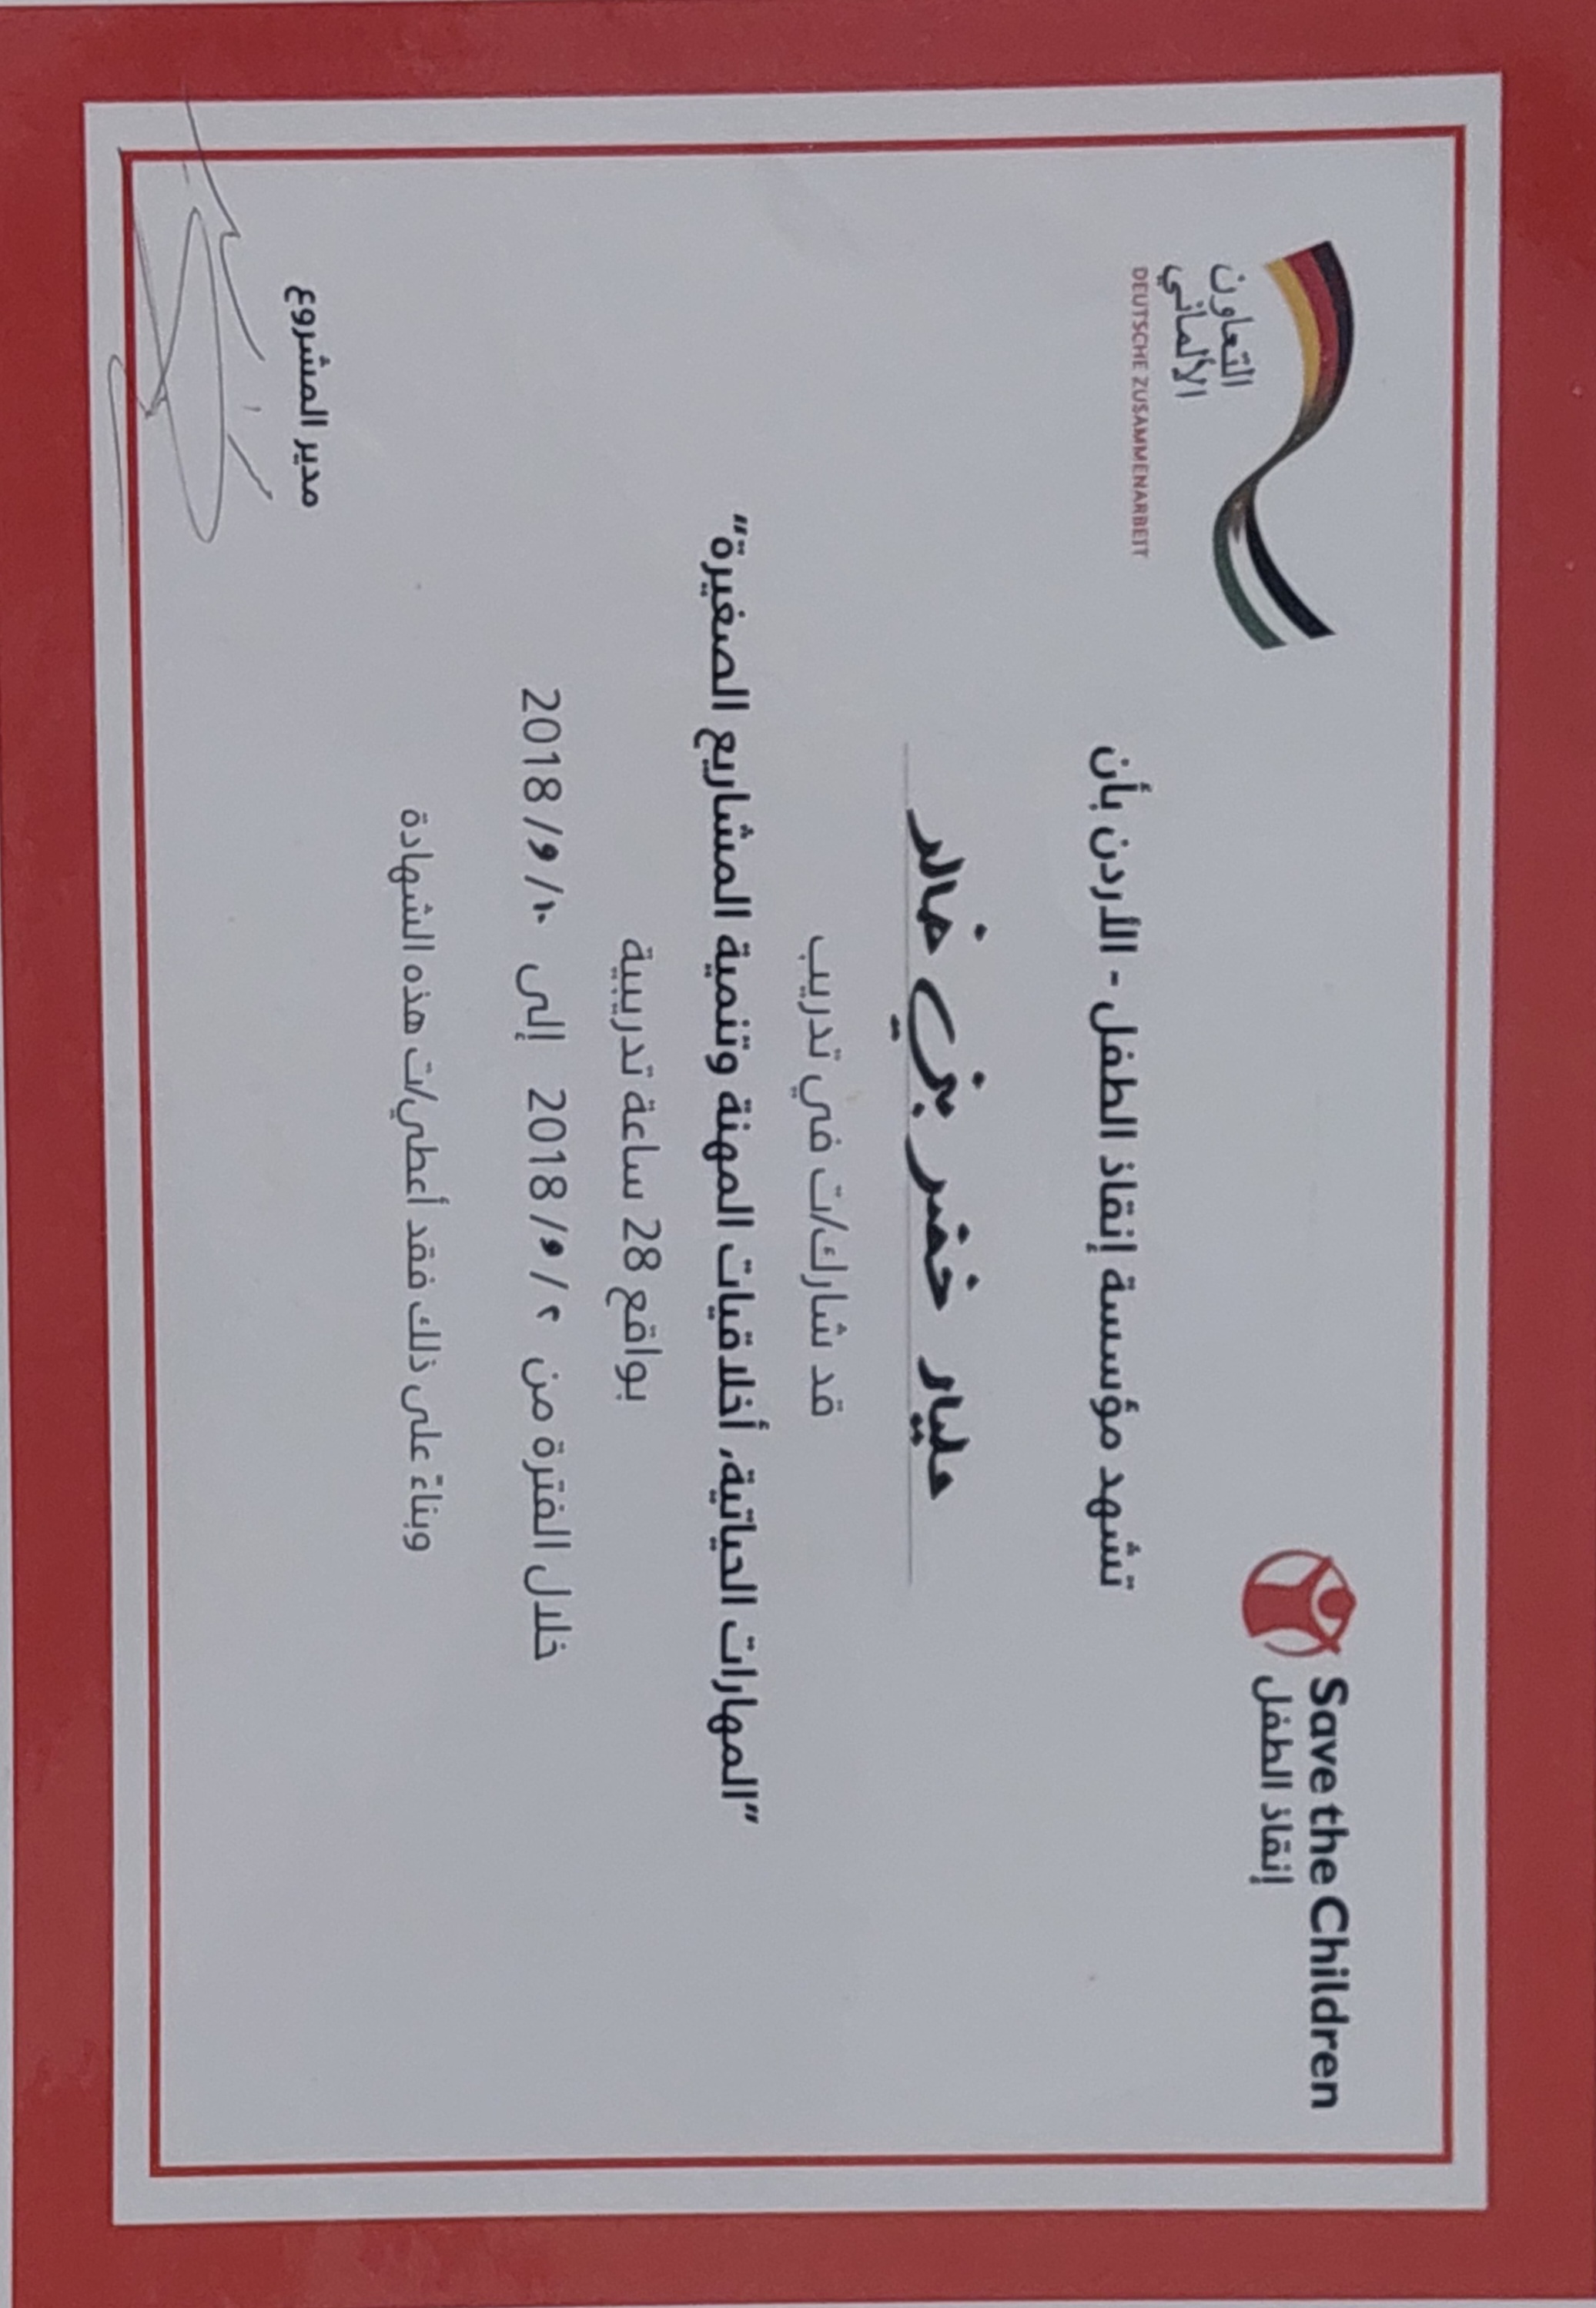 Save the Children
إنقاذ الطفل
التعاون
الألماني
DEUTSCHE ZUSAMMENARBEIT
تشهد مؤسسة إنقاذ الطفل - الأردن بأن
خضر بني خالد
قد شارك/ت في تدريب
”المهارات الحياتية، أخلاقيات المهنة وتنمية المشاريع الصغيرة“
بواقع 28 ساعة تدريبية
خلال الفترة من ٢ / ٩/ 2018 إلى ١٠/ ٩/ 2018
وبناءً على ذلك فقد أعطي/ت هذه الشهادة
مدير المشروع